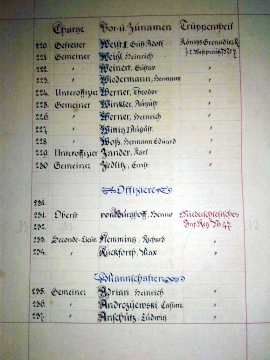 Charge Vor- u. Zunamen Truppentheil
220. Gefreiter Weist, Gust. Adolf Königs Grenadier R.
221. Gemeiner Weist, Heinrich (2. Westpreuß.) Nº 7
222. " Weinert, Gustav " Nº 7
223. " Wiedermann, Hermann " Nº 7
224. Unteroffizier Werner, Theodor " Nº 7
225. Gemeiner Winkler, August " Nº 7
226. " Werner, Heinrich " Nº 7
227. " Wittig, August " Nº 7
228. " Woß, Hermann Eduard " Nº 7
229. Unteroffizier Zander, Karl " Nº 7
230. Gemeiner Zedlitz, Ernst " Nº 7
Offiziere
231. Oberst von Burghoff, Benno Niederschlesisches
232. Inf. Reg. Nº 47.
233. Seconde-Lieut. Flemming, Richard "
234. " Rückforth, Max "
Mannschaften
235. Gemeiner Adrian, Heinrich "
236. " Androzijewski, Casimir "
237. " Anschütz, Ludwig "